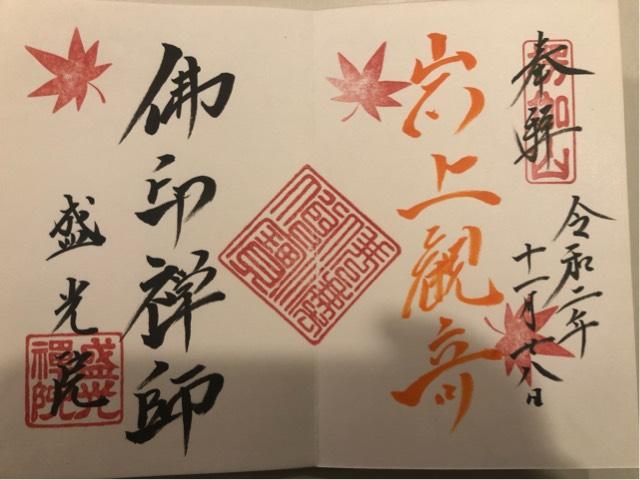 奉拝
令和二年
十一月廿八日
岩上観音
佛印禅師
盛光院
盛光
禪院